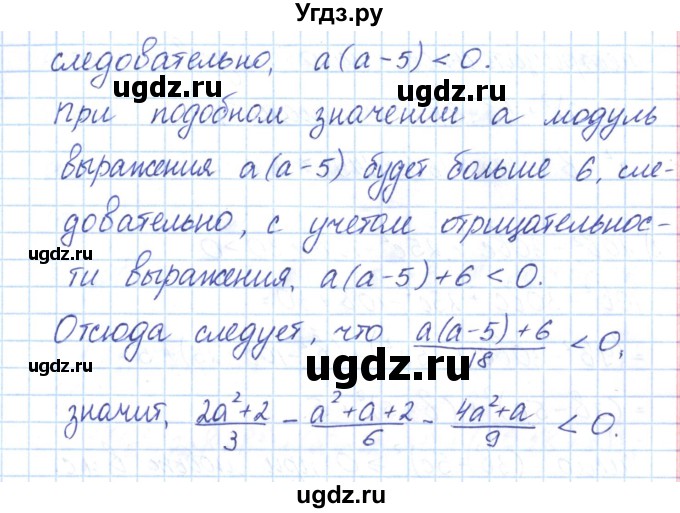 Угдз.ру
следовательно, a(a-5)<0.
ugdz.ru ugdz.ru
При подобном значении a модуль
выражения a(a-5) будет больше 6, сле-
довательно, с учетом отрицательнос-
ugdz.ru ugdz.ru
ти выражения, a(a-5)+6<0.
Отсюда следует, что (a(a-5)+6)/18 < 0,
ugdz.ru ugdz.ru
значит, (2a²+2)/3 - (a²+a+2)/6 - (4a²+a)/9 < 0.
ugdz.ru
ugdz.ru